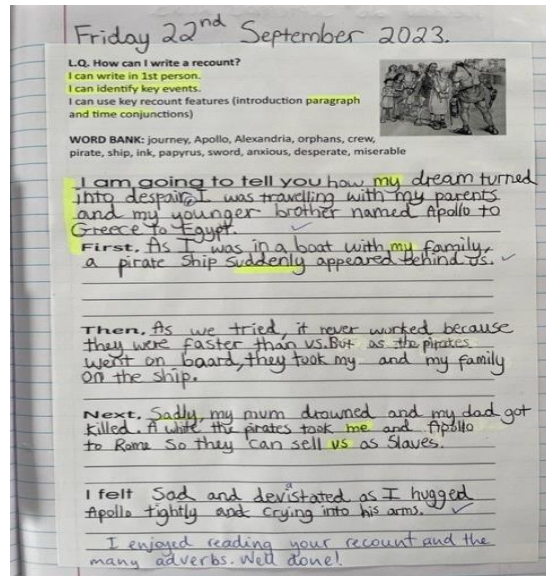 Friday 22nd September 2023.
L.Q. How can I write a recount?
I can write in 1st person.
I can identify key events.
I can use key recount features (introduction paragraph
and time conjunctions)
WORD BANK: journey, Apollo, Alexandria, orphans, crew,
pirate, ship, ink, papyrus, sword, anxious, desperate, miserable
I am going to tell you how my dream turned
into despair. I was travelling with my parents
and my younger brother named Apollo to
Greece to Egypt.
First, As I was in a boat with my family,
a pirate ship suddenly appeared behind us.
Then, As we tried, it never worked because
they were faster than us. But as the pirates
went on baard, they took my and my family
on the ship.
Next, Sadly, my mum drowned and my dad got
killed. A while the pirates took me and Apollo
to Rome so they can sell us as Slaves.
I felt Sad and devistated as I hugged
a
Apollo tightly and crying into his arms.
I enjoyed reading your recount and the
many adverbs. Well done!